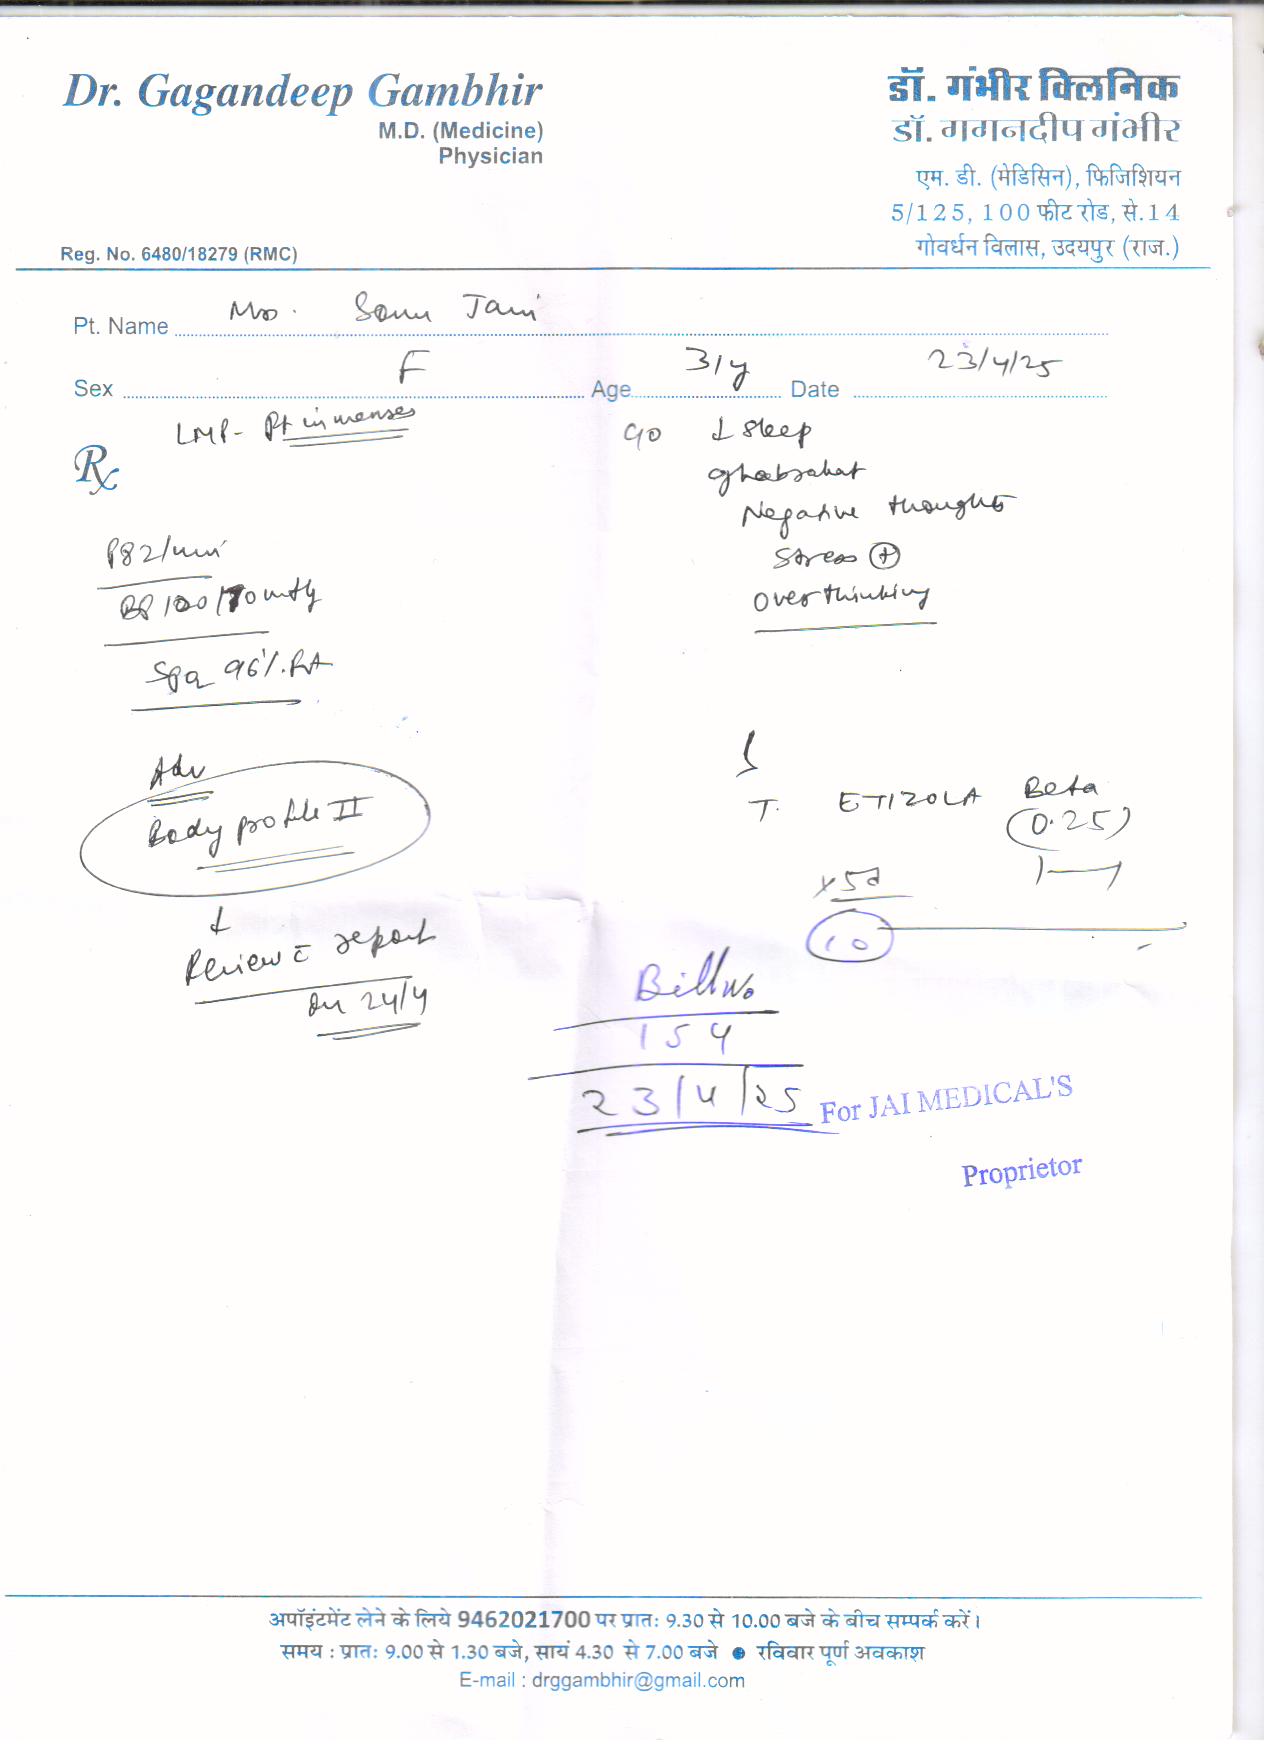 Dr. Gagandeep Gambhir
M.D. (Medicine)
Physician
Reg. No. 6480/18279 (RMC)
डॉ. गंभीर क्लिनिक
डॉ. गगनदीप गंभीर
एम. डी. (मेडिसिन), फिजिशियन
5/125, 100 फीट रोड, से.14
गोवर्धन विलास, उदयपुर (राज.)
Pt. Name Sonu
Sex F Age 31y Date 23/4/25
LMP- Pt in menses
Rx
P82/min
BP 100/70 mmHg
96% RA
Adv
Body profile II
↓
Review c̄ report
on 24/4
c/o ↓ sleep
ghabrahat
Negative thoughts
Stress ⊕
Overthinking
T. ETIZOLA Beta
(0.25)
x5d
10
Bill No
154
23/4/25
For JAI MEDICAL'S
Proprietor
अपॉइंटमेंट लेने के लिये 9462021700 पर प्रातः 9.30 से 10.00 बजे के बीच सम्पर्क करें।
समय : प्रातः 9.00 से 1.30 बजे, सायं 4.30 से 7.00 बजे ● रविवार पूर्ण अवकाश
E-mail : drggambhir@gmail.com